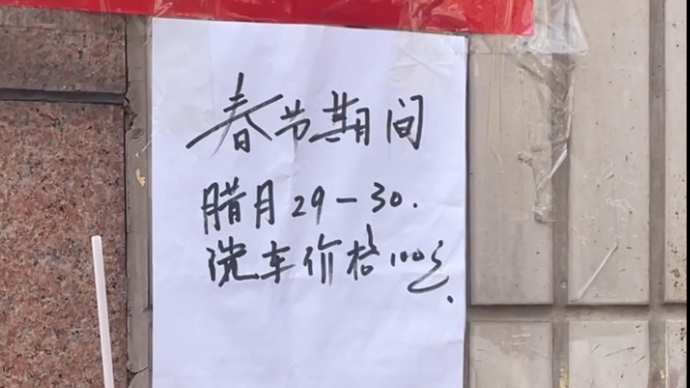 春节期间
腊月29-30.
洗车价格100元.